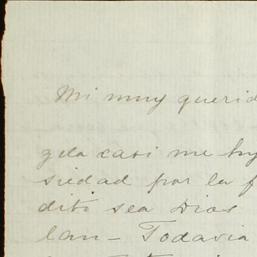 Mi muy querid
gela casi me hu
siedad por la f
dito sea Dios
lan – Todavia